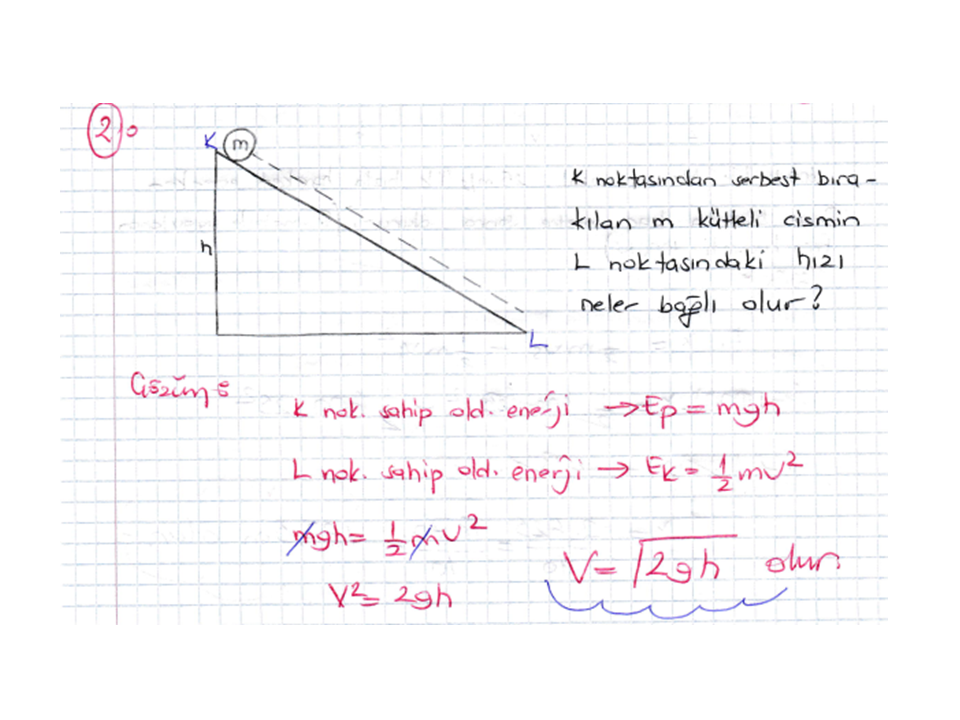 2)
K m
K noktasından serbest bıra-
kılan m kütleli cismin
h
L noktasındaki hızı
neler bağlı olur?
L
Çözüm:
K nok. sahip old. enerji → Ep = mgh
L nok. sahip old. enerji → Ek = 1/2 mv²
mgh = 1/2 mv²
V = √2gh olur
V² = 2gh